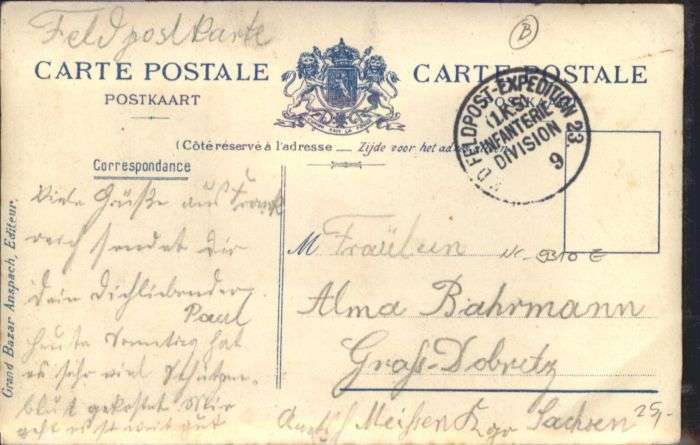 Feldpostkarte
B
CARTE POSTALE CARTE POSTALE
POSTKAART POSTKAART
K. D. FELDPOST-EXPEDITION 23.
(1.KS.)
INFANTERIE
DIVISION
9
(Côté réservé à l'adresse — Zijde voor het
Correspondance
Grand Bazar Anspach, Editeur.
Viele Grüße aus Frank
reich sendet dir
dein dichliebender
Paul
heute Sonntag hat
es sehr viel Schützen-
blut gekostet. Mir
geht es soweit gut
M Fräulein
Nr. 9310 E
Alma Bahrmann
Groß-Dobritz
Meissen Kgr Sachsen
25,-